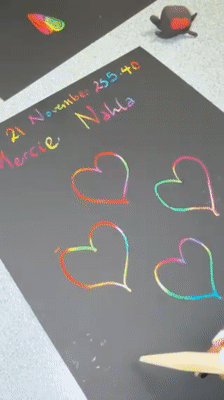 21 November 255.40
Mercie Nahla